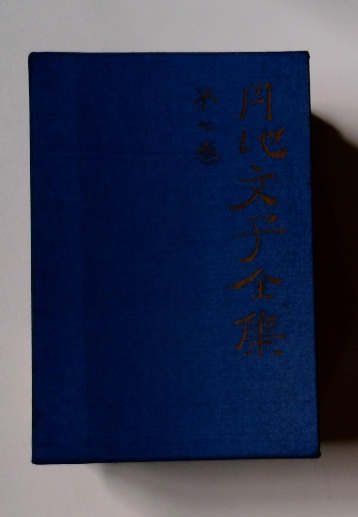 円地文子全集
第七巻